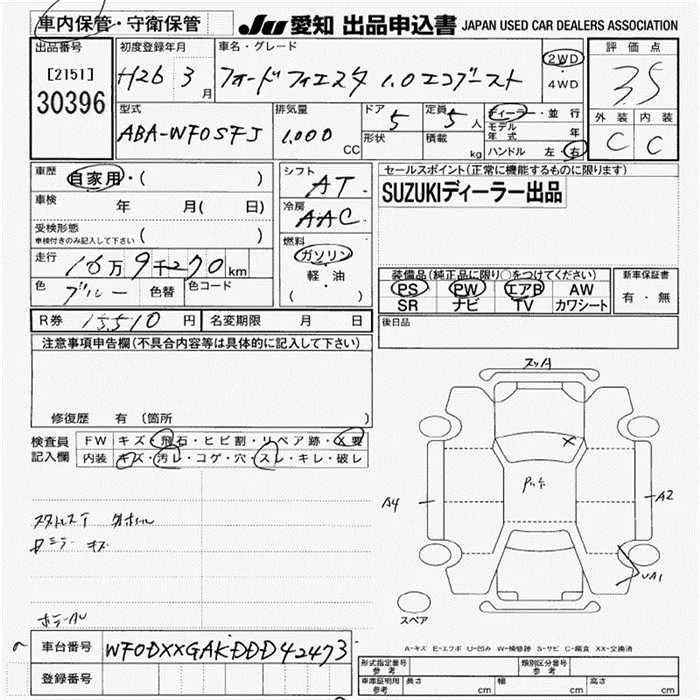 車内保管・守衛保管
JU 愛知 出品申込書 JAPAN USED CAR DEALERS ASSOCIATION
出品番号 [2151] 30396
初度登録年月 H26 3月
車名・グレード フォードフィエスタ 1.0エコブースト
2WD・4WD
評価点 3.5
外装 C 内装 C
型式 ABA-WF0SFJ
排気量 1,000 CC
ドア 5 形状
定員 5人 積載 kg
ディーラー・並行
モデル年式 年
ハンドル 左・右
車歴 自家用・( )
車検 年 月( 日)
受検形態 車検付きのみ記入して下さい ( )
走行 16万9千270km
色 ブルー 色替 色コード
シフト AT
冷房 AAC
燃料 ガソリン 軽・油 ( )
セールスポイント(正常に機能するものに限ります)
SUZUKIディーラー出品
装備品(純正品に限り○をつけてください)
PS PW エアB AW
SR ナビ TV カワシート
新車保証書 有・無
後日品
R券 15,510円 名変期限 月 日
注意事項申告欄(不具合内容等は具体的に記入して下さい)
修復歴 有 (箇所
検査員記入欄
FW キズ・飛石・ヒビ割・リペア跡・X要
内装 キズ・汚レ・コゲ・穴・スレ・キレ・破レ
キズ
A4
A2
スペア
A-キズ E-エクボ U-凹み W-補修跡 S-サビ C-腐食 XX-交換済
車台番号 WF0DXXGAKDDD42473
登録番号
形式指定番号 参考 類別区分番号 参考
車庫証明用 参考 長さ cm 幅 cm 高さ cm